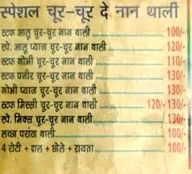 स्पेशल चूर-चूर दे नान थाली
स्टफ आलु चूर-चूर नान थाली 100/-
स्पे. आलु प्याज चूर-चूर नान थाली 120/-
स्टफ गोभी चूर-चूर नान थाली 110/-
स्टफ पनीर चूर-चूर नान थाली 130/-
गोभी प्याज चूर-चूर नान थाली 120/-
स्टफ मिस्सी चूर-चूर नान थाली 120/-130/-
स्पे. मिक्स चूर-चूर नान थाली 130/-
लच्छा परांठा थाली 100/-
4 रोटी + दाल + छोले + रायता 100/-